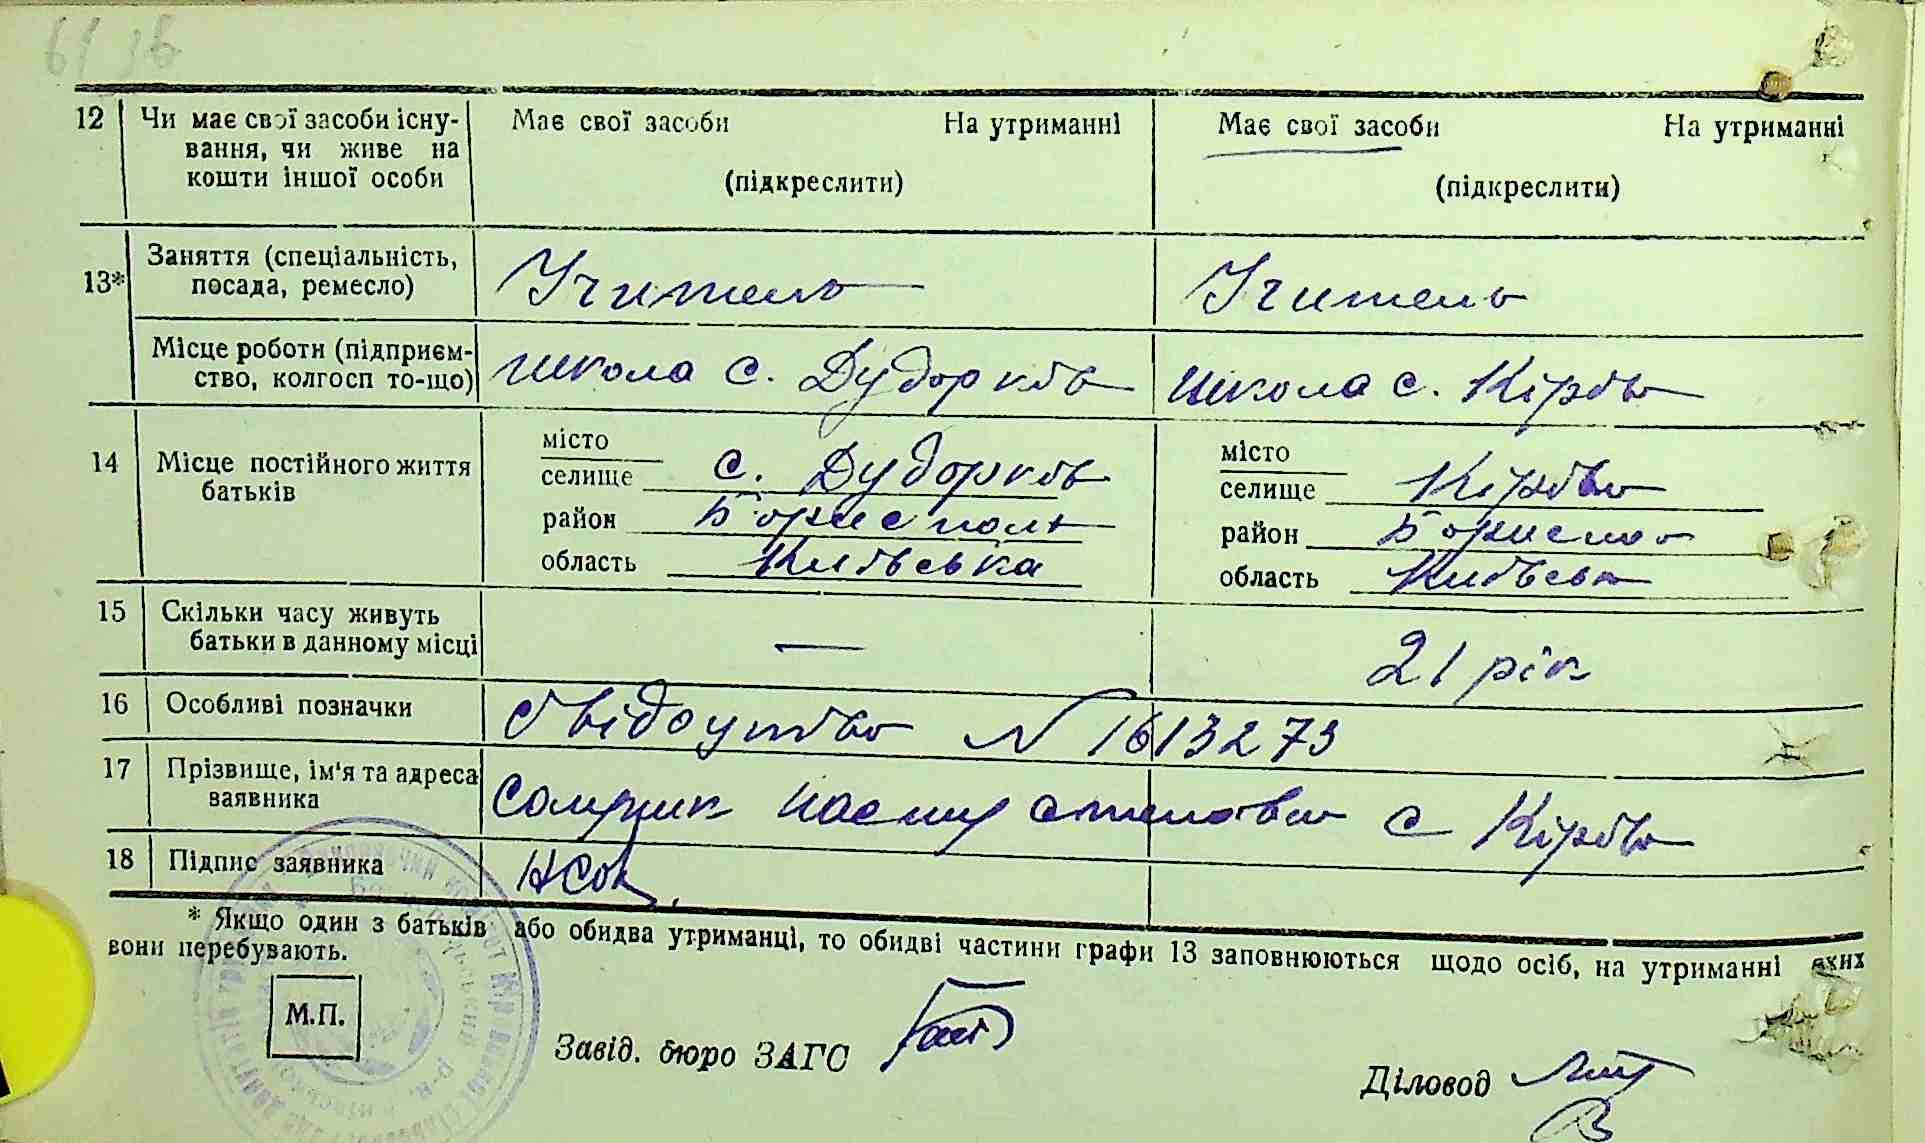 12 Чи має свої засоби існу- Має свої засоби На утриманні Має свої засоби На утриманні
вання, чи живе на
кошти іншої особи (підкреслити) (підкреслити)
13* Заняття (спеціальність,
посада, ремесло) Учитель Учитель
Місце роботи (підприєм-
ство, колгосп то-що) школа с. Дударків школа с. Кірово
14 Місце постійного життя
батьків
місто
селище с. Дударків
район Бориспольс
область Київська
місто
селище Кірово
район Бориспо
область Київсь
15 Скільки часу живуть
батьки в данному місці — 21 рік
16 Особливі позначки Свідоцтво N 1613273
17 Прізвище, ім'я та адреса
заявника с Кірово
18 Підпис заявника НСок
* Якщо один з батьків або обидва утриманці, то обидві частини графи 13 заповнюються щодо осіб, на утриманні яких
вони перебувають.
М.П.
Завід. бюро ЗАГС
Діловод